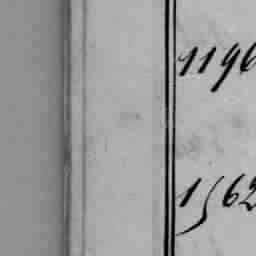 1196
1562